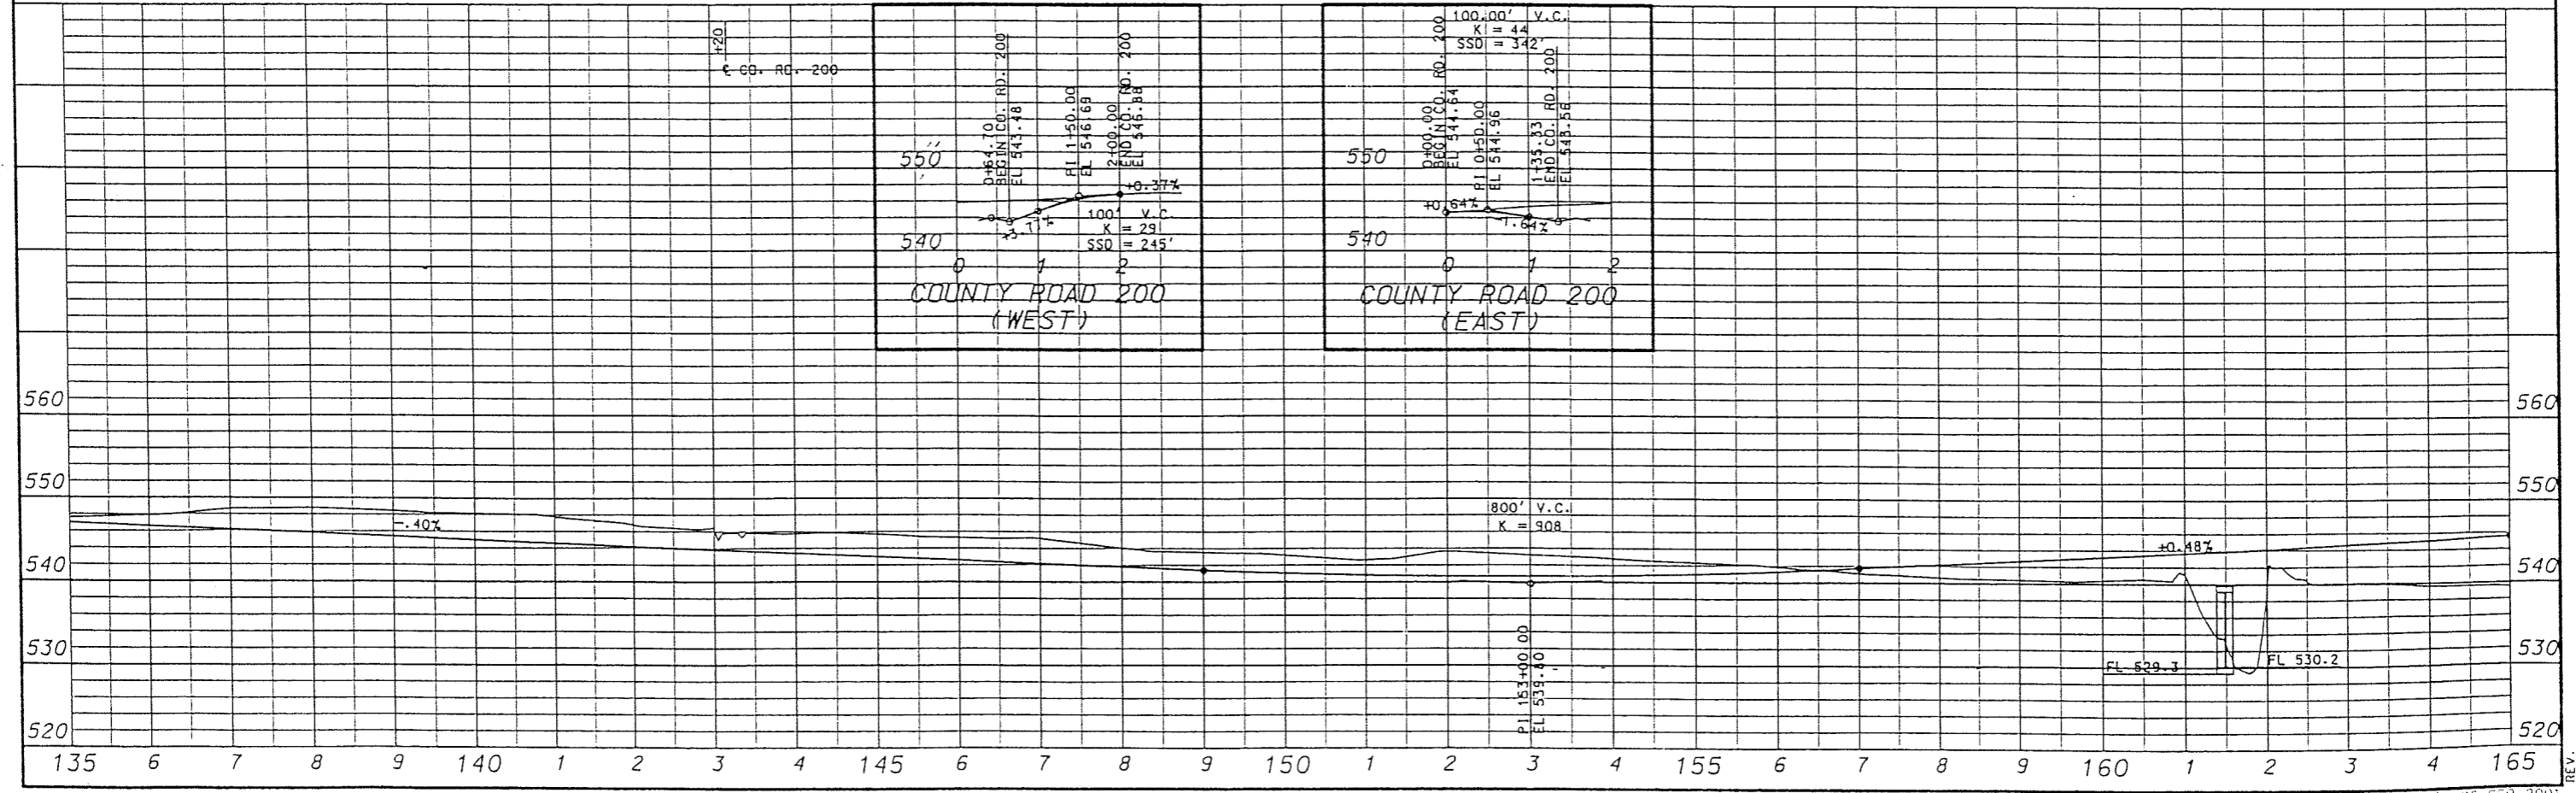 +20
℄ CO. RD. 200
0+64.70
BEGIN CO. RD. 200
EL 543.48
PI 1+50.00
EL 546.69
2+00.00
END CO. RD. 200
EL 546.88
550
540
+3.77%
+0.37%
100' V.C.
K = 29
SSD = 245'
0 1 2
COUNTY ROAD 200
(WEST)
100.00' V.C.
K = 44
SSD = 342'
0+00.00
BEGIN CO. RD. 200
EL 544.64
PI 0+50.00
EL 544.96
1+35.33
END CO. RD. 200
EL 543.56
550
540
+0.64%
-1.64%
0 1 2
COUNTY ROAD 200
(EAST)
560 560
550 550
540 540
530 530
520 520
-.40%
800' V.C.
K = 908
PI 153+00.00
EL 539.80
+0.48%
FL 529.3
FL 530.2
135 6 7 8 9 140 1 2 3 4 145 6 7 8 9 150 1 2 3 4 155 6 7 8 9 160 1 2 3 4 165
REV.